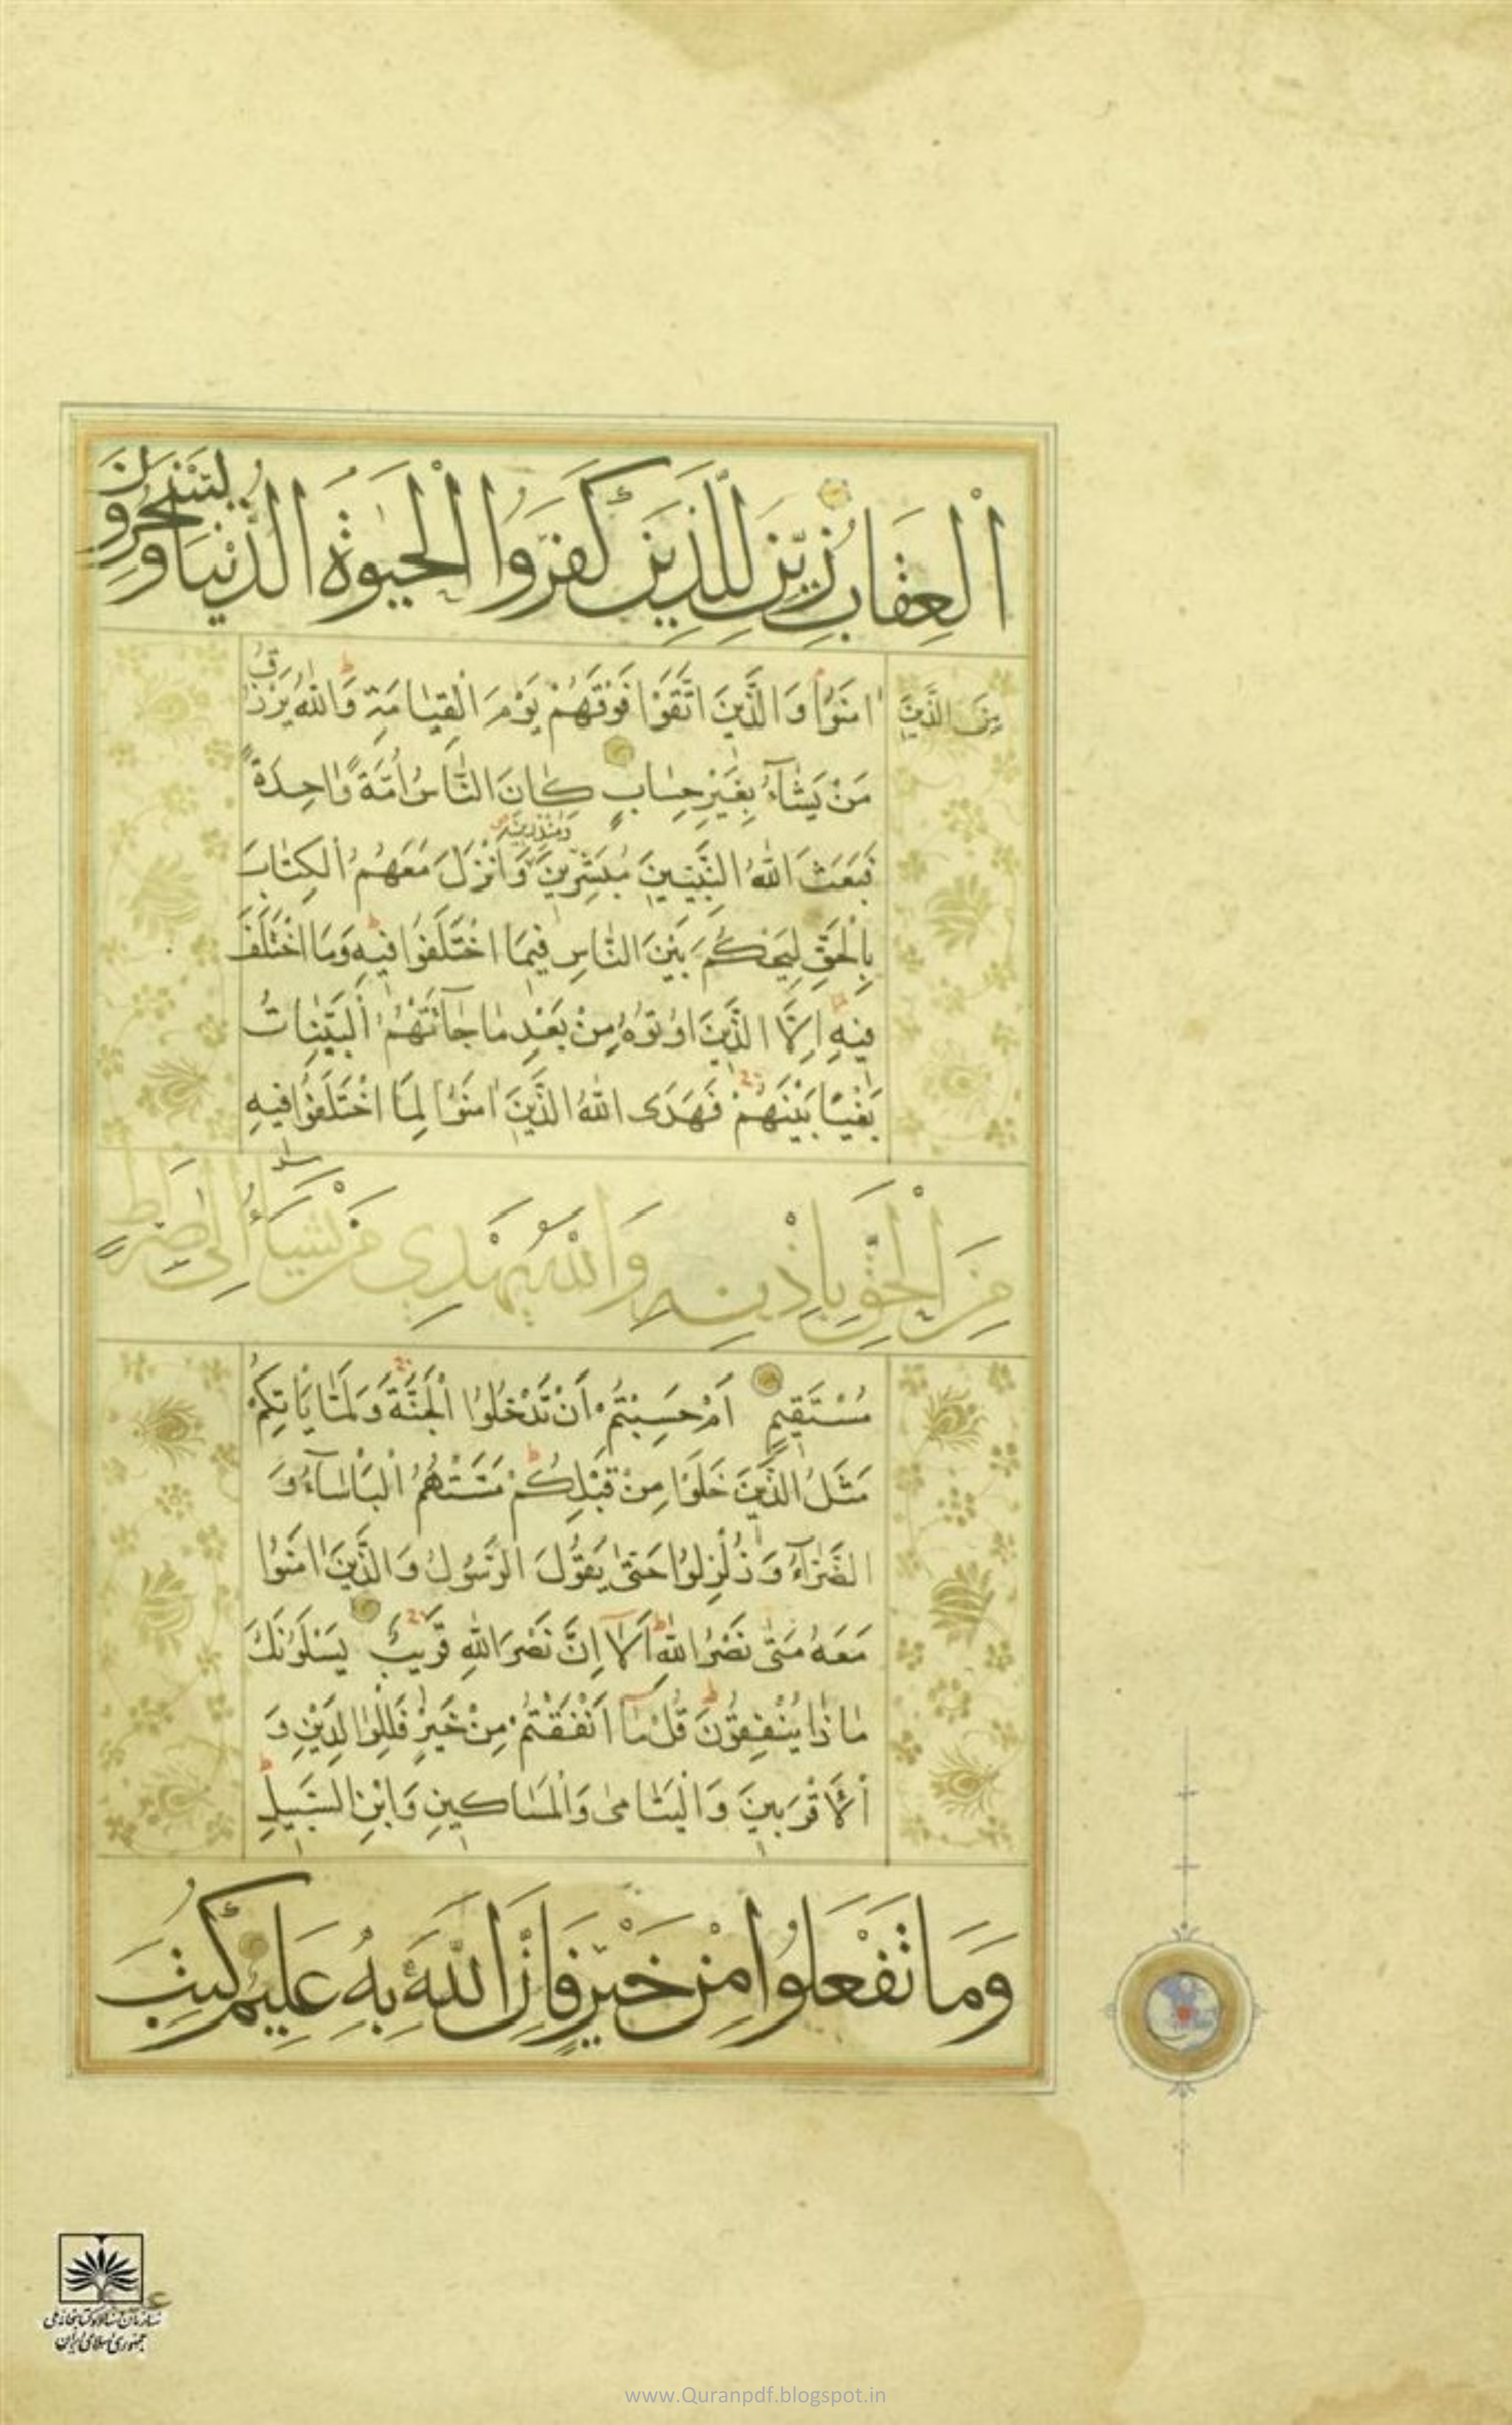 الْعِقَابِ زُيِّنَ لِلَّذِينَ كَفَرُوا الْحَيٰوةُ الدُّنْيَا وَيَسْخَرُونَ
مِنَ الَّذِينَ اٰمَنُوا وَالَّذِينَ اتَّقَوْا فَوْقَهُمْ يَوْمَ الْقِيٰامَةِ وَاللّٰهُ يَرْزُقُ
مَنْ يَشٰٓاءُ بِغَيْرِ حِسٰابٍ كٰانَ النّٰاسُ اُمَّةً وٰاحِدَةً
فَبَعَثَ اللّٰهُ النَّبِيّينَ مُبَشِّرِينَ وَمُنْذِرِينَ وَاَنْزَلَ مَعَهُمُ الْكِتٰابَ
بِالْحَقِّ لِيَحْكُمَ بَيْنَ النّٰاسِ فِيمَا اخْتَلَفُوا فِيهِ وَمَا اخْتَلَفَ
فِيهِ اِلَّا الَّذِينَ اُوتُوهُ مِنْ بَعْدِ مٰا جٰٓائَتْهُمُ الْبَيِّنٰاتُ
بَغْيًا بَيْنَهُمْ فَهَدَى اللّٰهُ الَّذِينَ اٰمَنُوا لِمَا اخْتَلَفُوا فِيهِ
مِنَ الْحَقِّ بِاِذْنِهِ وَاللّٰهُ يَهْدِي مَنْ يَشَاءُ اِلٰى صِرَاطٍ
مُسْتَقِيمٍ اَمْ حَسِبْتُمْ اَنْ تَدْخُلُوا الْجَنَّةَ وَلَمّٰا يَأْتِكُمْ
مَثَلُ الَّذِينَ خَلَوْا مِنْ قَبْلِكُمْ مَسَّتْهُمُ الْبَأْسٰٓاءُ وَ
الضَّرّٰٓاءُ وَزُلْزِلُوا حَتّٰى يَقُولَ الرَّسُولُ وَالَّذِينَ اٰمَنُوا
مَعَهُ مَتٰى نَصْرُ اللّٰهِ اَلٰٓا اِنَّ نَصْرَ اللّٰهِ قَرِيبٌ يَسْئَلُونَكَ
مٰاذٰا يُنْفِقُونَ قُلْ مٰٓا اَنْفَقْتُمْ مِنْ خَيْرٍ فَلِلْوٰالِدَيْنِ وَ
الْاَقْرَبِينَ وَالْيَتٰامىٰ وَالْمَسٰاكِينِ وَابْنِ السَّبِيلِ
وَمَا تَفْعَلُوا مِنْ خَيْرٍ فَاِنَّ اللّٰهَ بِهِ عَلِيمٌ كُتِبَ
سازمان اسناد و کتابخانه ملی
جمهوری اسلامی ایران
www.Quranpdf.blogspot.in